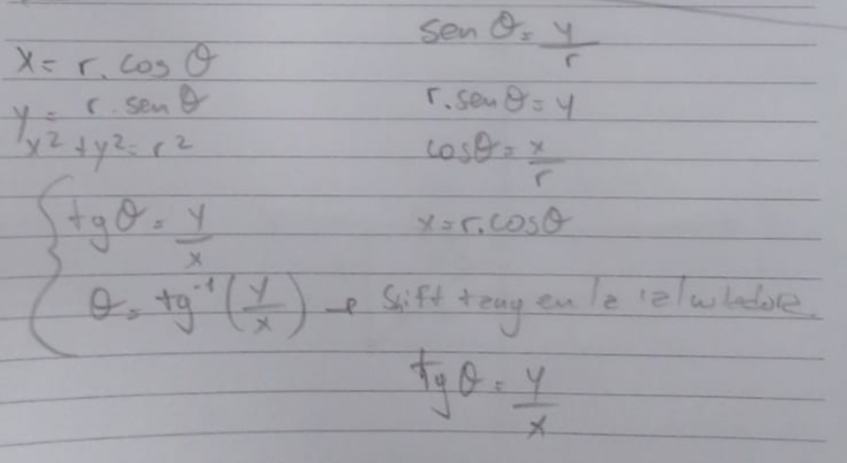 x = r. cos θ
y = r. sen θ
x² + y² = r²
tg θ = y/x
θ = tg⁻¹ (y/x) → Shift tang en la calculadora
sen θ = y/r
r. sen θ = y
cos θ = x/r
x = r. cos θ
tg θ = y/x